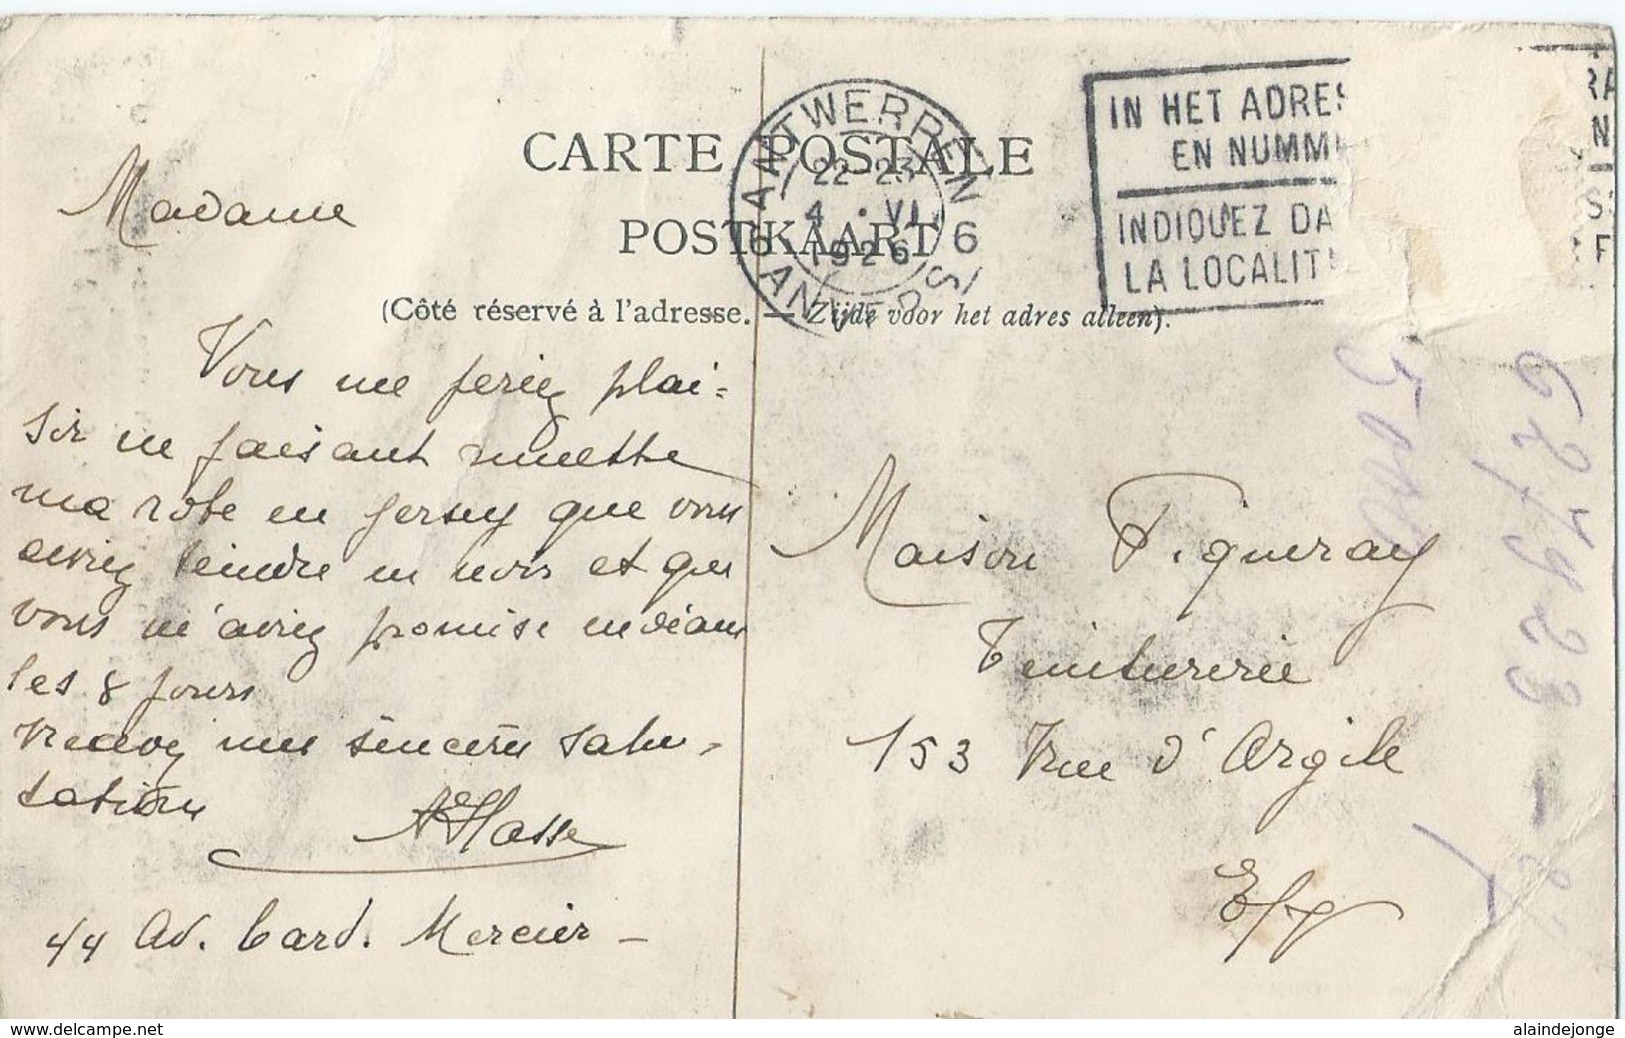 CARTE POSTALE
POSTKAART
(Côté réservé à l'adresse. — Zijde voor het adres alleen).
ANTWERPEN 6
22-23
4 · VI
1926
6 ANVERS
IN HET ADRES
EN NUMM
INDIQUEZ DA
LA LOCALIT
RA
N
S
F
Madame
Vous me feriez plai=
sir me faisant remettre
ma robe en jersey que vous
aviez teindre en noir et que
vous m'aviez promise endéans
les 8 jours
recevez mes sincères salu-
tations
Hasse
44 Av. Card. Mercier -
Maison Figueray
Teinturerie
153 rue d'Argile
E/V
62923
www.delcampe.net
alaindejonge